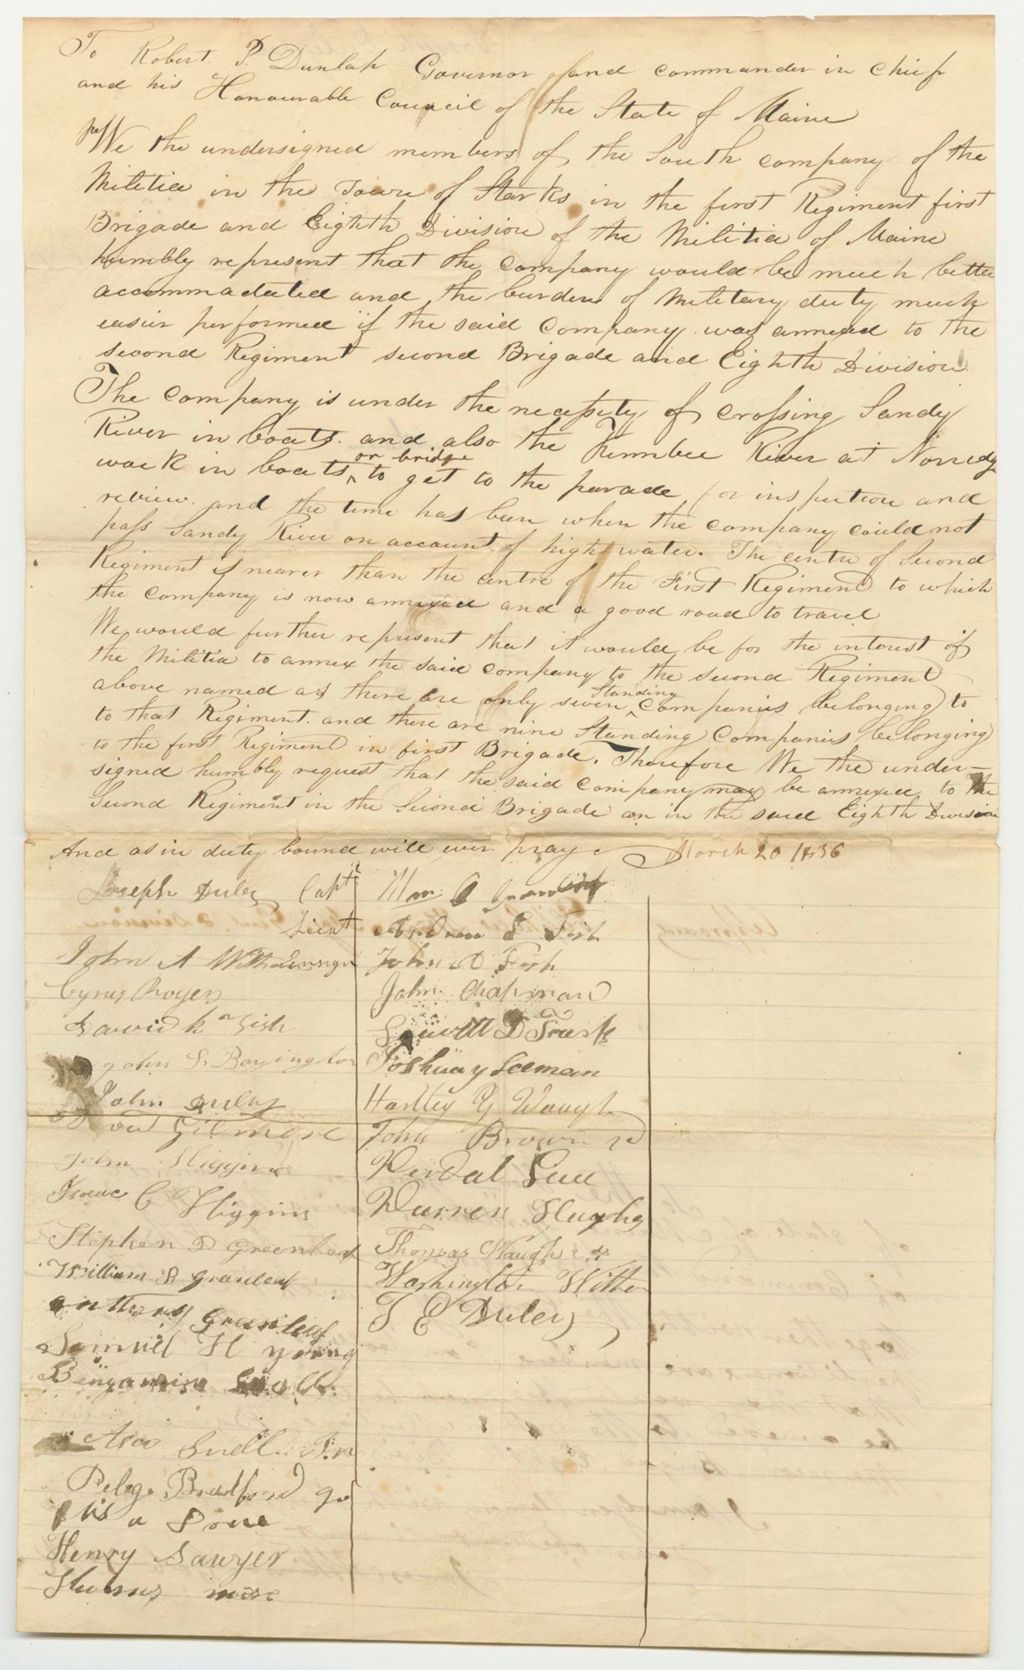 To Robert P. Dunlap Governor and commander in chief
and his Honourable Council of the State of Maine
We the undersigned members of the South company of the
Militia in the Town of Starks in the first Regiment first
Brigade and Eighth Division of the Militia of Maine
humbly represent that the company would be much better
accommadated and the burden of Military duty much
easier performed if the said Company was annexed to the
second Regiment second Brigade and Eighth Division
The company is under the necessity of crossing Sandy
River in boats and also the Kennbec River at Norridg
wock in boats or bridge to get to the parade for inspection and
review and the time has been when the company could not
pass Sandy River on account of high water. The centre of Second
Regiment is nearer than the centre of the First Regiment to which
the Company is now annexed and a good road to travel
We would further represent that it would be for the interest of
the Militia to annex the said company to the second Regiment
above named as there are only seven Standing Companies belonging to
to that Regiment and there are nine Standing Companies belonging
to the first Regiment in first Brigade. Therefore We the under-
signed humbly request that the said Company may be annexed to the
Second Regiment in the Second Brigade in the said Eighth Division
And as in duty bound will ever pray March 20 1836
Joseph Duley Capt
Lieut
John A
Cyrus Boyen
David
John S Boyington
John Duley
Gilmore
John Higgins
Isaac C Higgins
Stephen D Greenleaf
William A Greenleaf
anthony Greenleaf
Samuel H young
Benjamin
Asa
Peleg Bradford
Henry Sawyer
Wm
Andrew Fish
John Fish
John Chapman
D Trask
Joshua
Hartley G Waugh
John Brown 2d
Warren Hughs
Thomas Waugh
Washington
T E Duley